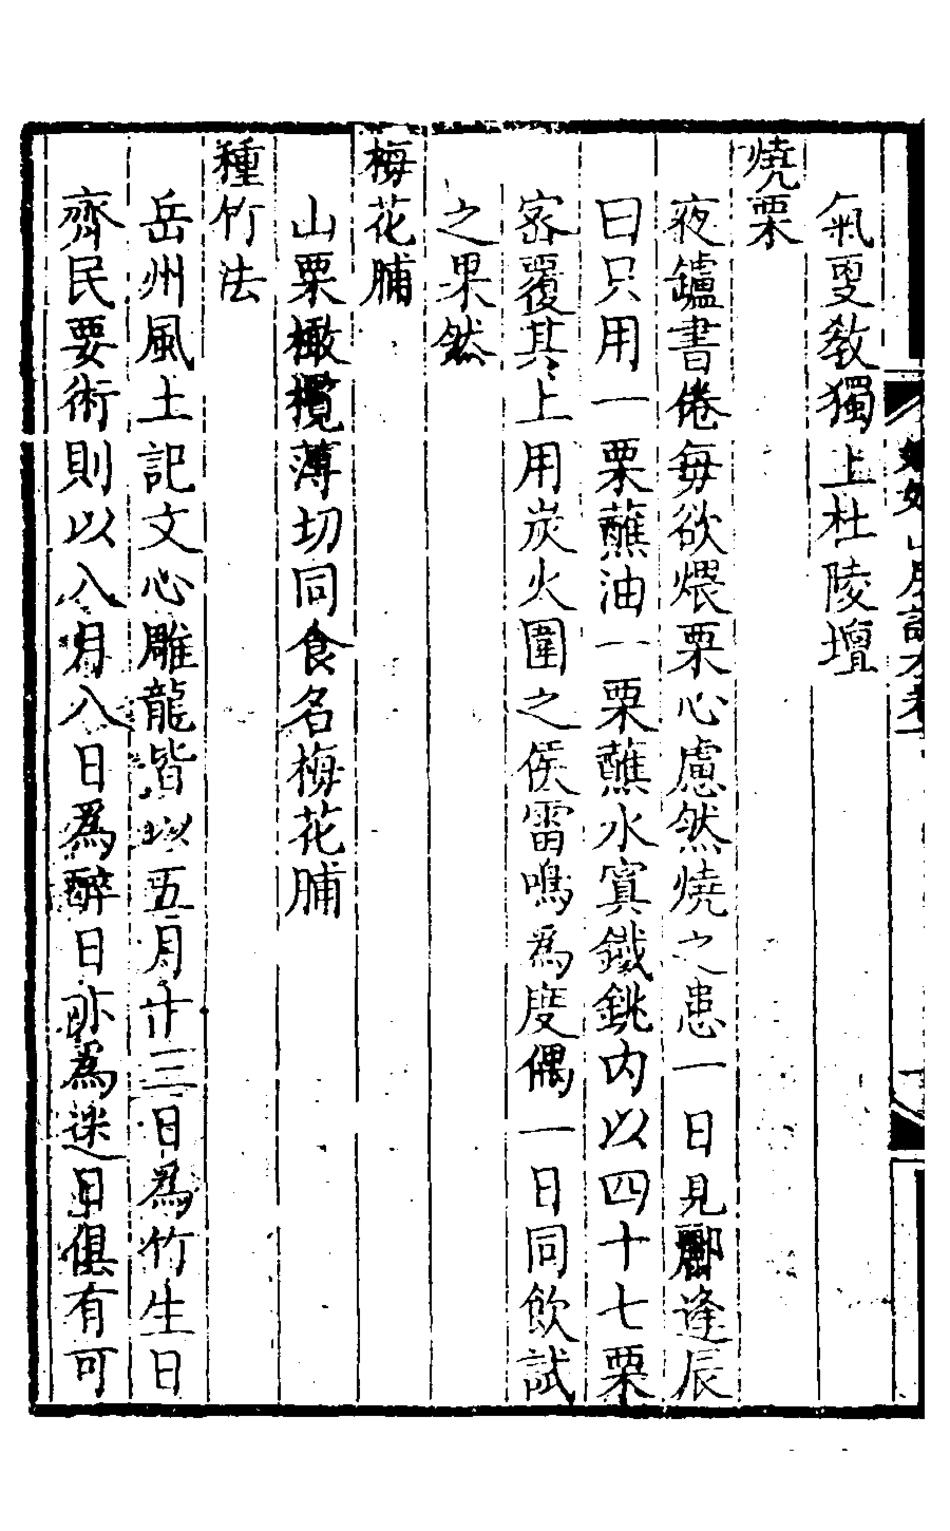 氣更敎獨上杜陵壇
燒栗
夜鑪書倦每欲煨栗心慮然燒之患一日見酈逢辰
曰只用一栗蘸油一栗蘸水寘鐵銚内以四十七栗
宻覆其上用炭火圍之侯雷鳴爲度偶一日同飲試
之果然
梅花脯
山栗橄欖薄切同食名梅花脯
種竹法
岳州風土記文心雕龍皆以五月十三日爲竹生日
齊民要術則以八月八日爲醉日亦爲迷日俱有可